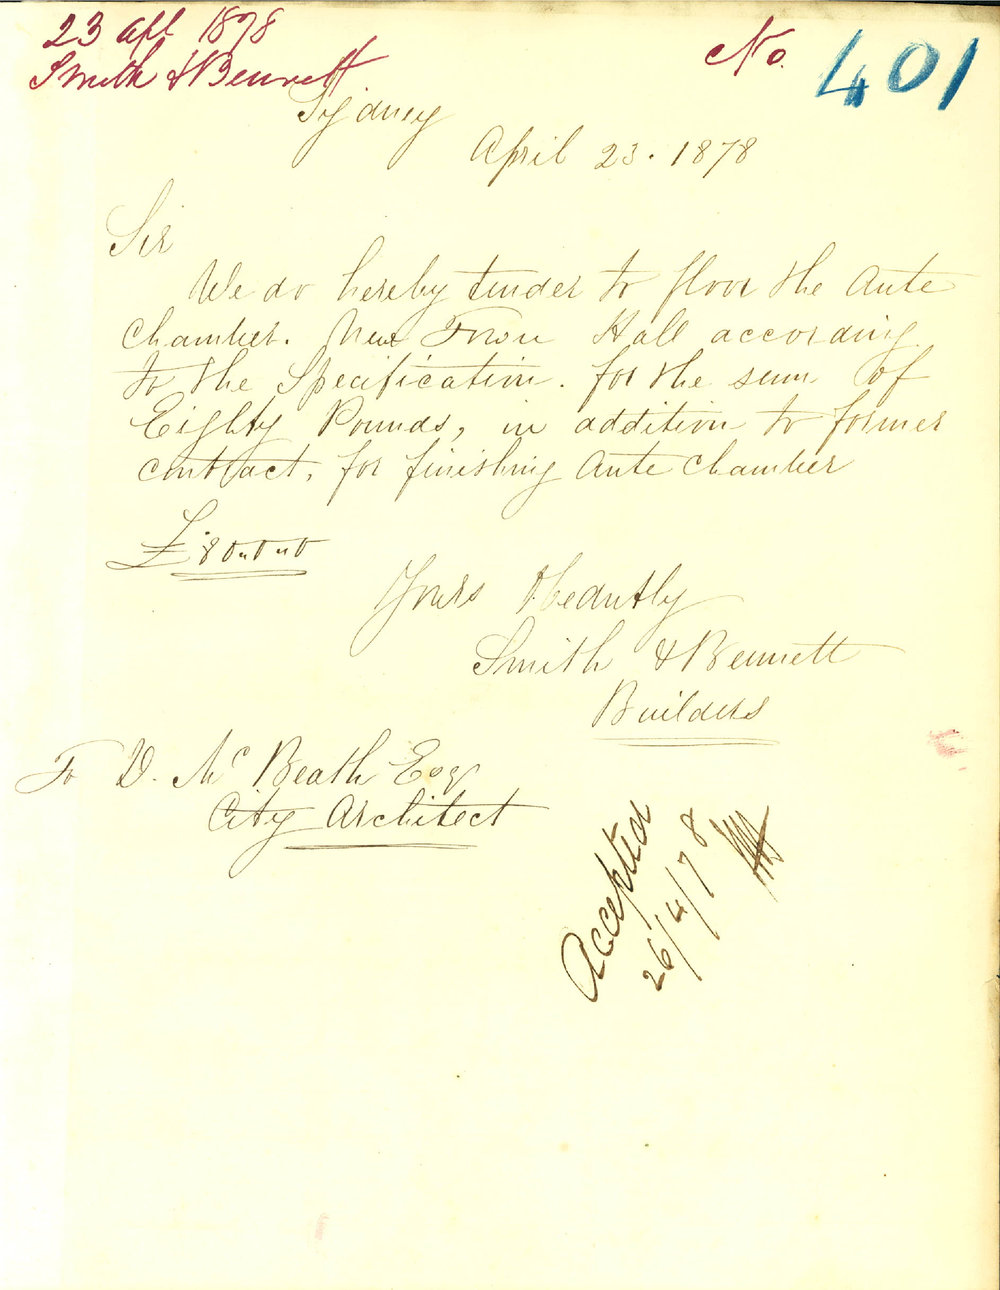 23 Apl 1878
Smith & Bennett
No. 401
Sydney
April 23. 1878
Sir
We do hereby tender to floor the Ante
Chamber. New Town Hall according
to the Specification. for the sum of
Eighty Pounds, in addition to former
contract, for finishing Ante Chamber
£80"0"0
Yours Obedntly
Smith & Bennett
Builders
To D. McBeath Esq
City Architect
Accepted
26/4/78